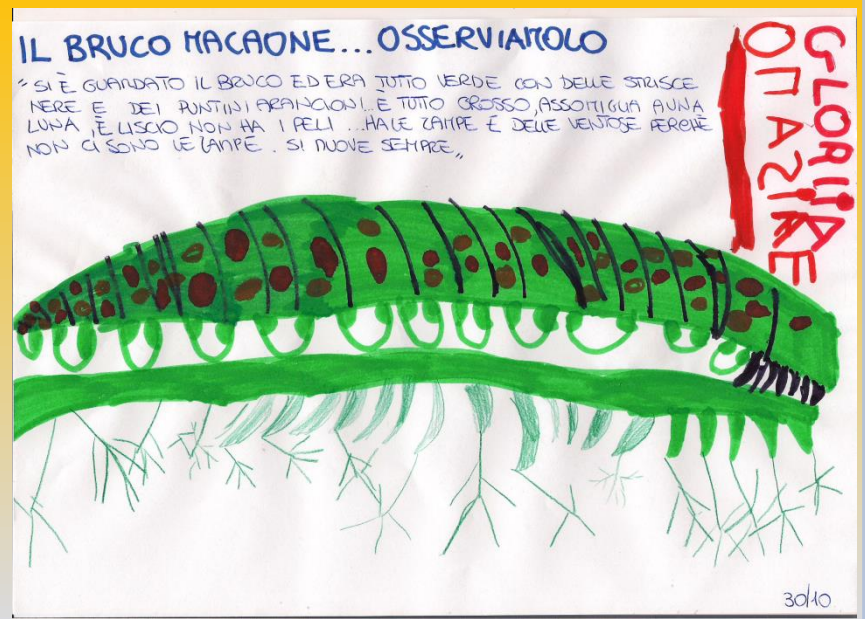 IL BRUCO MACAONE...OSSERVIAMOLO
"SI È GUARDATO IL BRUCO ED ERA TUTTO VERDE CON DELLE STRISCE
NERE E DEI PUNTINI ARANCIONI..È TUTTO GROSSO, ASSOMIGLIA A UNA
LUNA, È LISCIO NON HA I PELI ...HA LE ZAMPE E DELLE VENTOSE PERCHÈ
NON CI SONO LE ZAMPE. SI MUOVE SEMPRE"
GLORIA
30/10